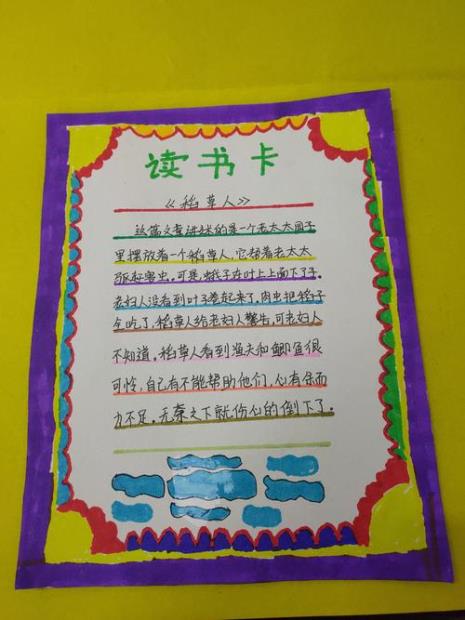 读书卡
《稻草人》
这篇文章讲述的是一个老太太园子
里摆放着一个稻草人，它帮着老太太
驱赶害虫。可是蛾子在叶上上面下了子。
老妇人没看到叶子卷起来了。肉虫把稻子
全吃了，稻草人给老妇人警告，可老妇人
不知道。稻草人看到渔夫和鲫鱼很
可怜，自己有不能帮助他们，心有余而
力不足。无奈之下就伤心的倒下了。